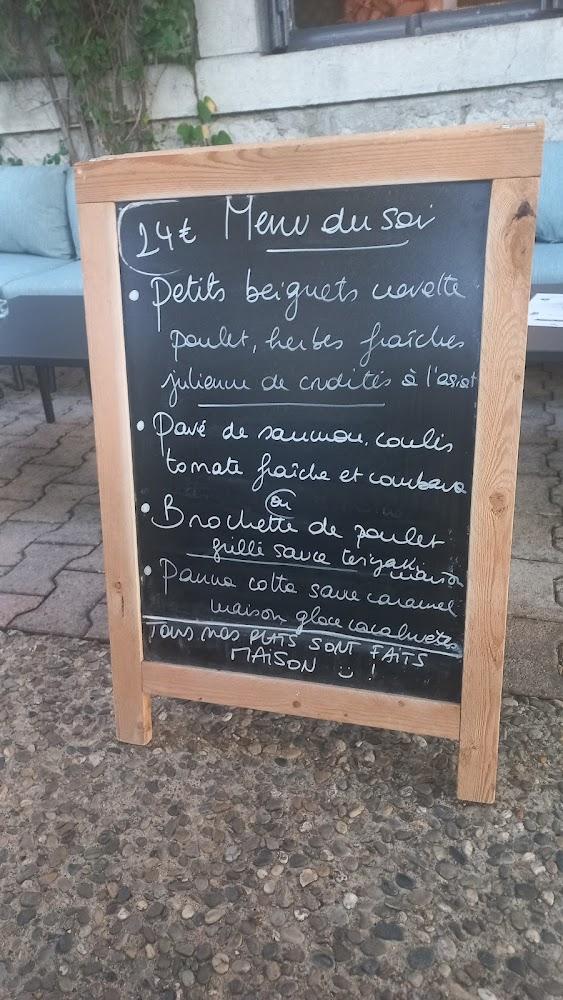 24€ Menu du soir
• Petits beignets
poulet, herbes fraîches
julienne de crudités à l'asiat
• Pavé de saumon, coulis
tomate fraîche et combava
ou
• Brochette de poulet
grillé sauce teriyaki
maison
• Panna cotta sauce caramel
maison glace cacahuètes
TOUS NOS PLATS SONT FAITS
MAISON !